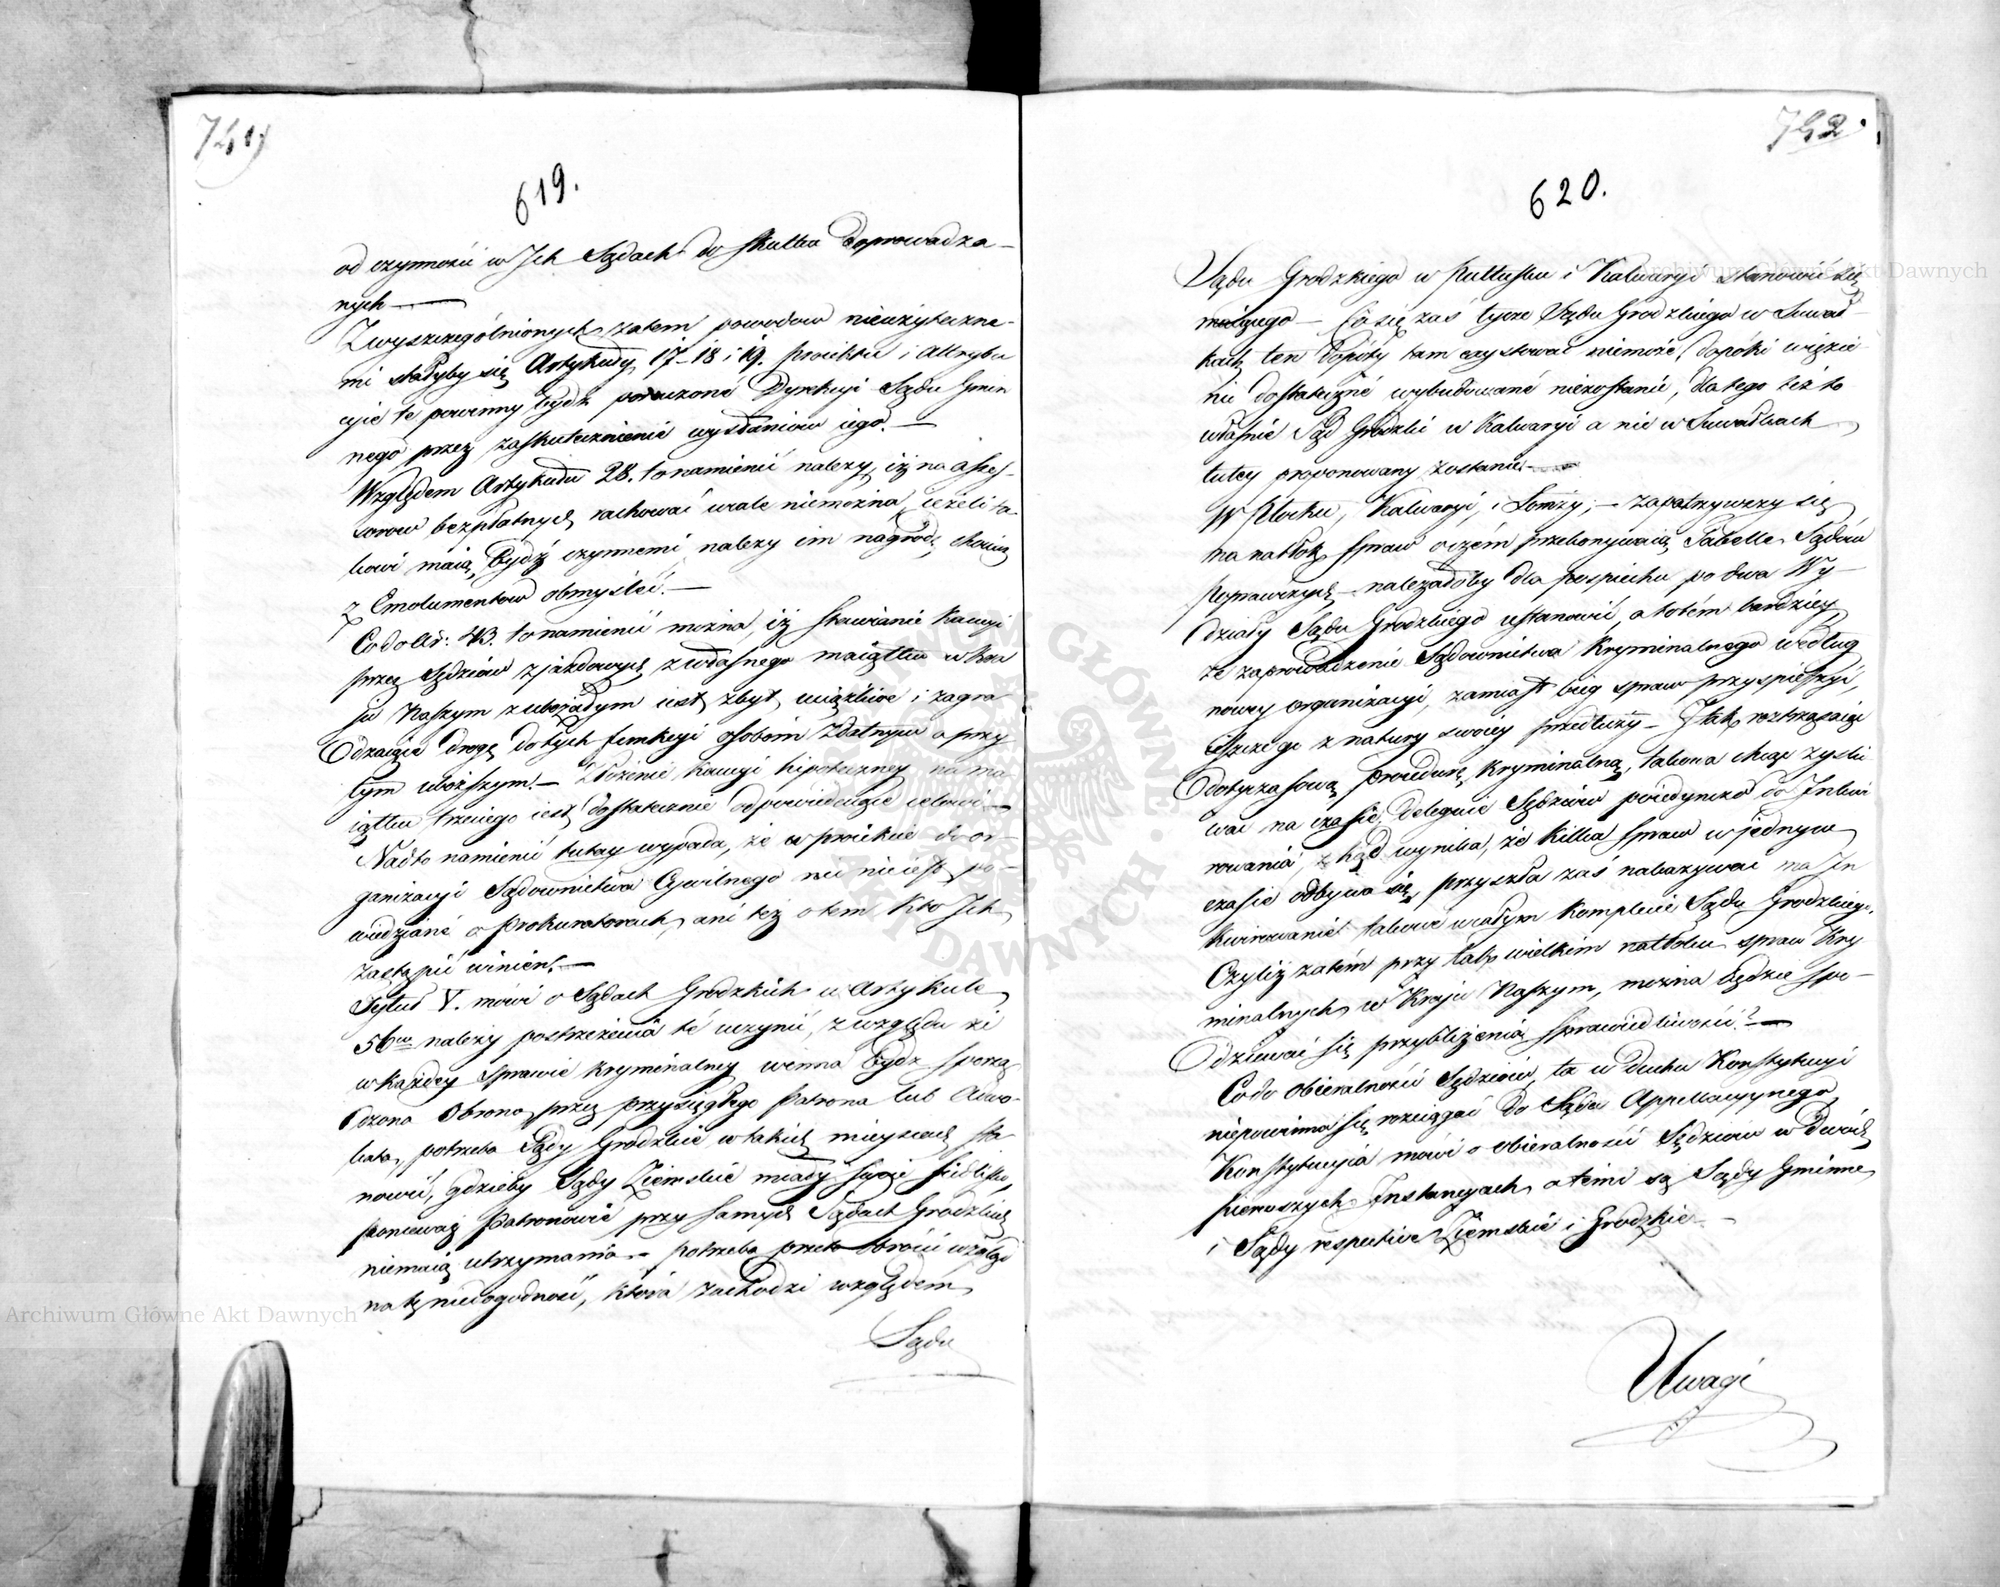 741)
619.
od czynności w Ich Sądach do skutku doprowadza-
nych —
Z wyszczególnionych zatem powodow nieużyteczne-
mi stałyby się Artykuły 17-18 i 19. proiektu i Attrybu
cyie te powinny bydź poruczone Dyrekcyi Sądu Gmin
nego przez zaskutecznienie wysłańców iego. —
Względem Artykułu 28. to namienić należy, iż na Asses-
sorow bezpłatnych rachować wcale niemożna, ieżeli ta-
kowi maią bydź czynnemi, należy im nagrodę chociaż
z Emolumentow obmyśleć. —
Co do Ar: 43. to namienić można, iż stawianie Kaucyi
przez Sędziów zjazdowych z własnego maiątku w Kra
ju Naszym zubożałym iest zbyt uciążliwe i zagra
dzaiące drogę do tych funkcyi osobom zdatnym a przy
tym uboższym. — Złożenie Kaucyi hipoteczney na ma
iątku trzeciego iest dostatecznie odpowiedaiące celowi —
Nadto namienić tutay wypada, że w proiekcie do or-
ganizacyi Sądownictwa Cywilnego nic nie iest po-
wiedziane o Prokuratorach, ani też o tem Kto Ich
zastąpić winien. —
Tytuł V. mówi o Sądach Grodzkich w Artykule
56ym należy postrzeżenia te uczynić, z względu że
w każdey sprawie Kryminalney winna bydź sporzą
dzona Obrona, przez przysięgłego Patrona lub Adwo-
kata, potrzeba Sądy Grodzkie w takich mieyscach sta
nowić, gdzieby Sądy Ziemskie miały swoie siedlisko,
ponieważ Patronowie przy samych Sądach Grodzkich
niemaią utrzymania. — potrzeba przeto zwrócić wzgląd
na tę niedogodność, która zachodzi względem
Sądu
742.
620.
Sądu Grodzkiego w Pułtusku i Kalwaryi stanowić się
maiącego — Co się zaś tycze Sądu Grodzkiego w Suwał-
kach ten dopóty tam exystować niemoże, dopóki więzie
nie dostateczne wybudowane niezostanie, dla tego też to
właśnie Sąd Grodzki w Kalwaryi a nie w Suwałkach
tutey proponowany zostanie. —
W Płocku, Kalwaryi, i Łomży, — zapatrzywszy się
na natłok spraw o czém przekonywaią Tabelle Sądów
Poprawczych — należałoby dla pospiechu po dwa Wy-
działy Sądu Grodzkiego ustanowić, a to tém bardziey,
że zaprowadzenie Sądownictwa Kryminalnego według
nowey organizacyi, zamiast bieg spraw przyspieszyć,
ieszcze go z natury swoiey przedłuży — I tak roztrząsaiąc
dotychczasową procedurę Kryminalną, takowa chcąc zyski
wac na czasie deleguie Sędziów poiedynczo do Inkwi
rowania, z kąd wynika, że kilka spraw w jednym
czasie odbywa się, przyszła zaś nakazywać ma In
kwirowanie takowe w całym komplecie Sądu Grodzkiego.
Czyliż zatém przy tak wielkim natłoku spraw Kry
minalnych w Kraju Naszym, można będzie spo-
dziewać się przybliżenia sprawiedliwości? —
Co do obieralności Sędziow, ta w duchu Konstytucyi
niepowinna się rozciągać do Sądu Appellacyynego,
Konstytucyia mówi o obieralności Sędziow w dwóch
pierwszych Instancyach, a temi są Sądy Gminne
i Sądy respective Ziemskie i Grodzkie. —
Uwagi
Archiwum Główne Akt Dawnych
Archiwum Główne Akt Dawnych
ARCHIWUM GŁÓWNE AKT DAWNYCH